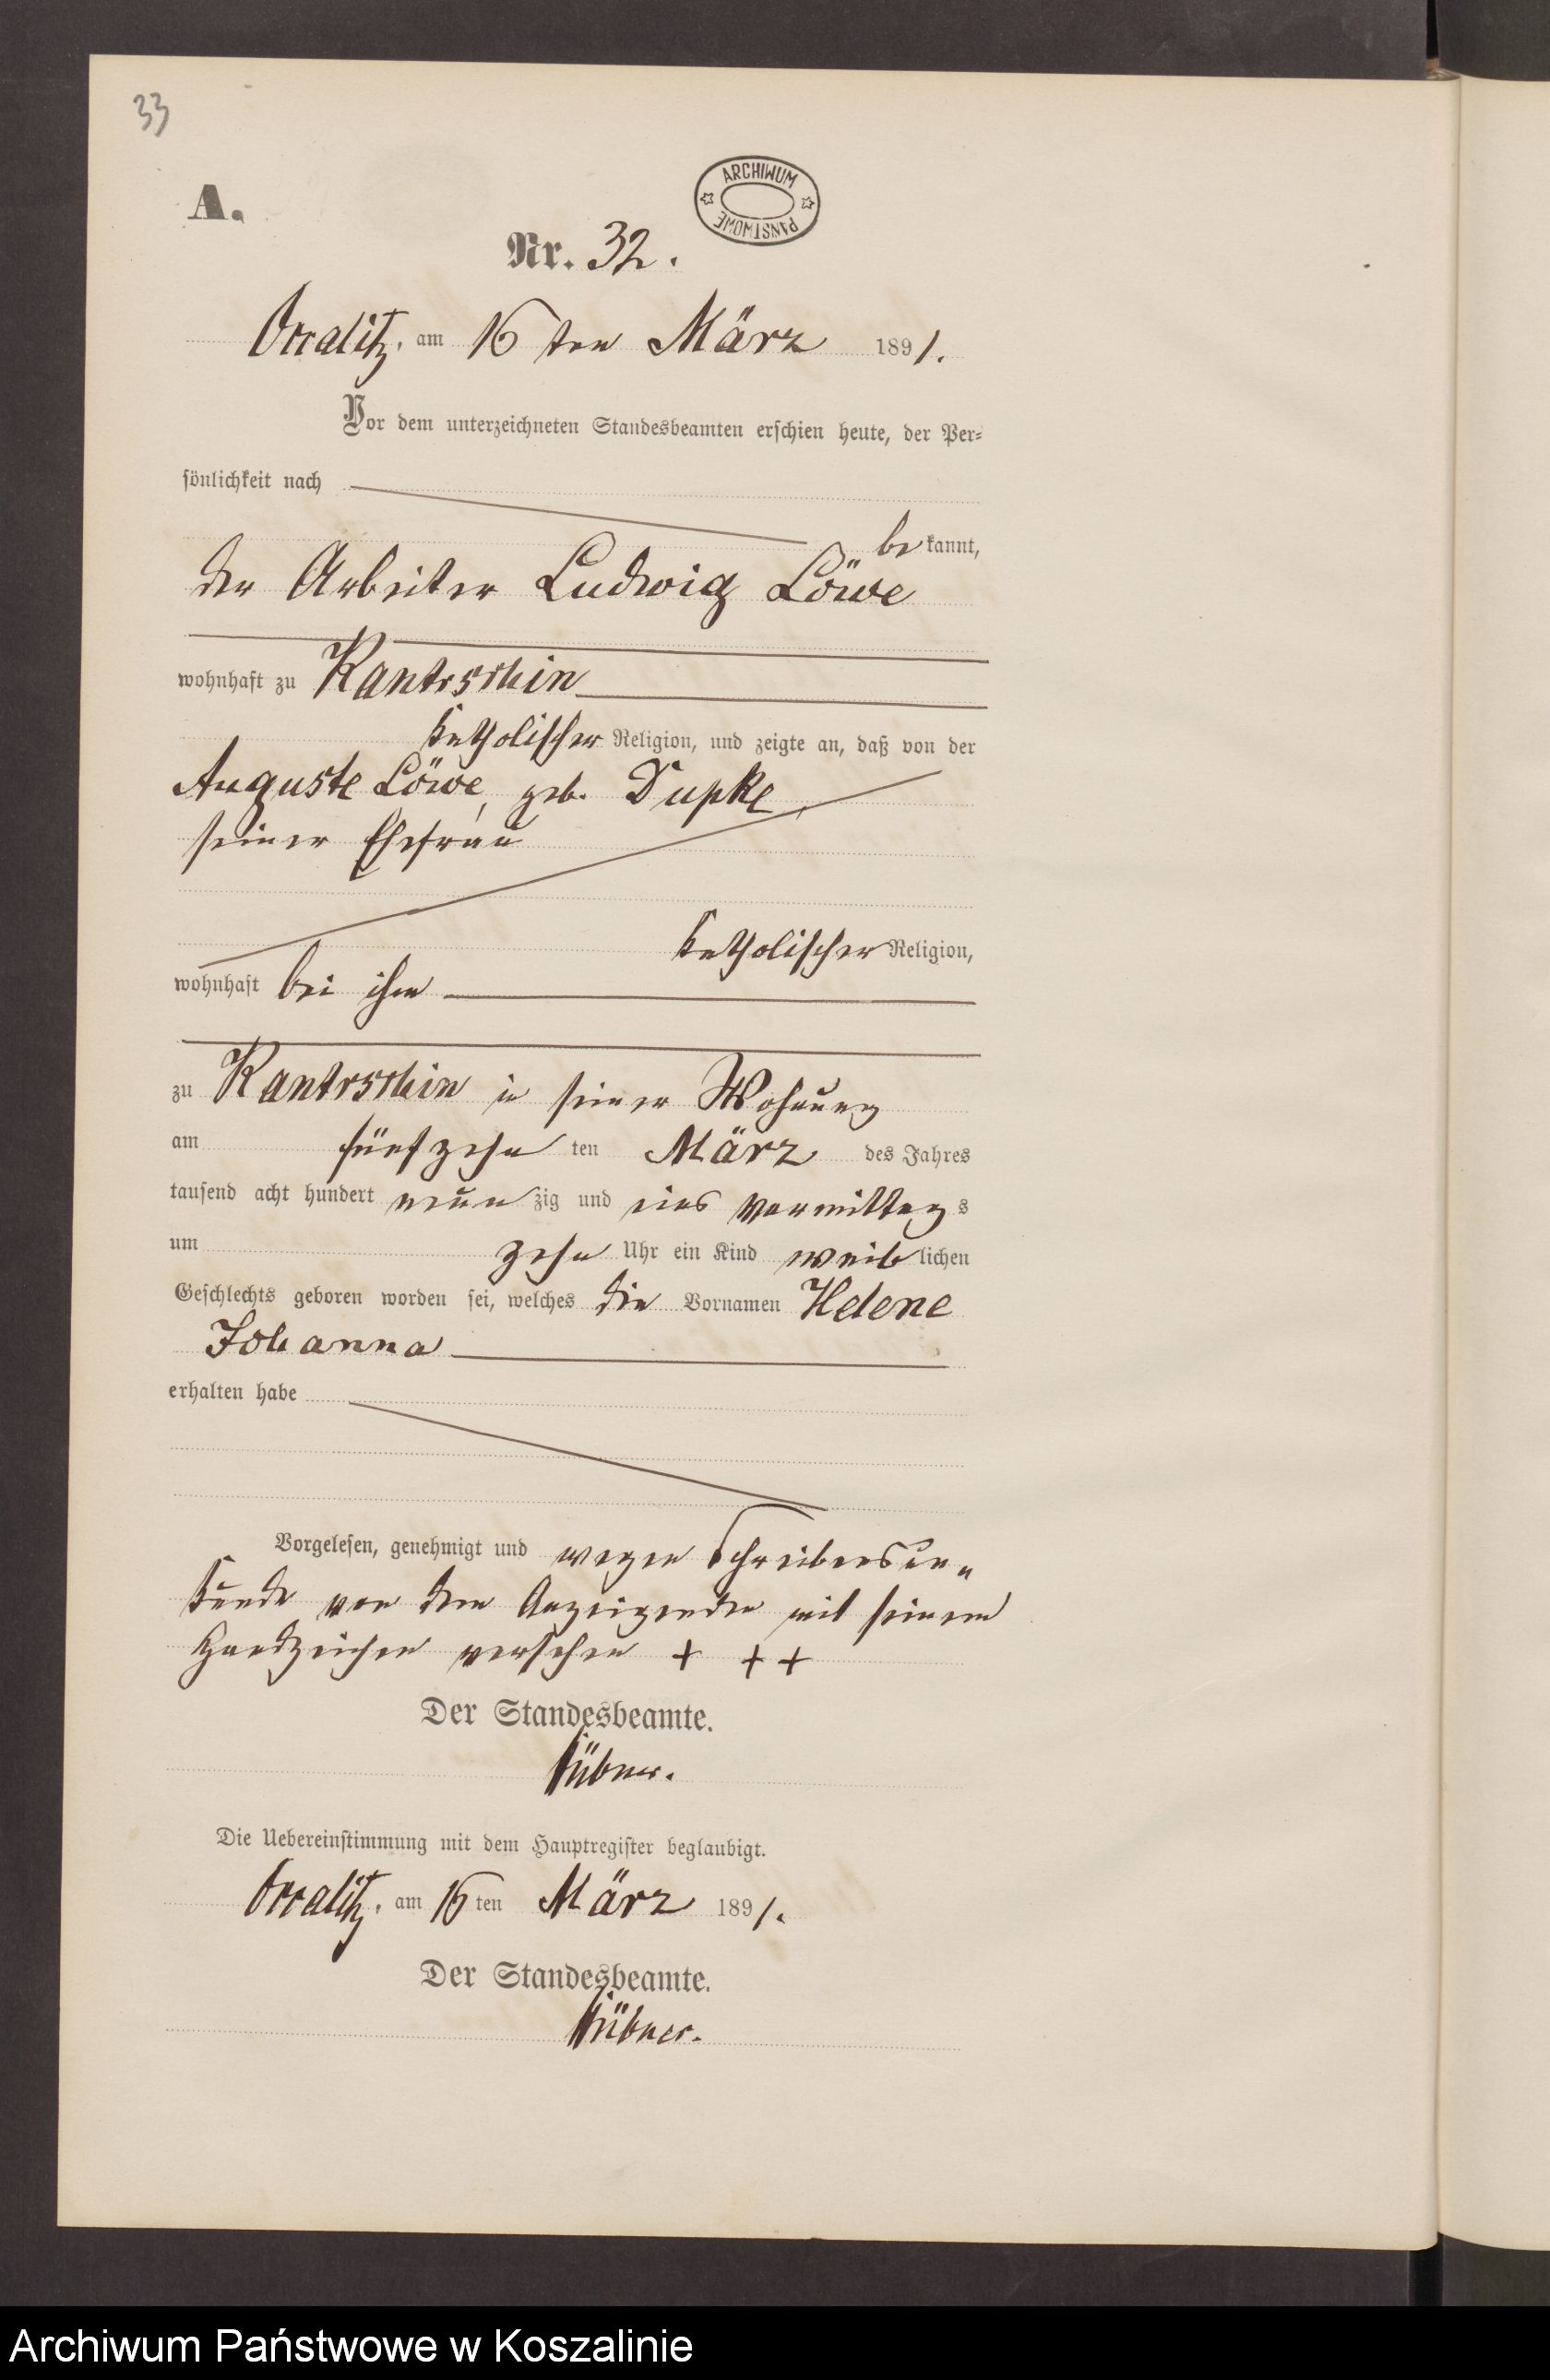 33
ARCHIWUM
PAŃSTWOWE
A.
Nr. 32.
Occalitz, am 16 ten März 1891.
Vor dem unterzeichneten Standesbeamten erschien heute, der Per-
sönlichkeit nach
be kannt,
der Arbeiter Ludwig Löwe
wohnhaft zu Kantrschin
katholischer Religion, und zeigte an, daß von der
Auguste Löwe, geb. Dupke
seiner Ehefrau
katholischer Religion,
wohnhaft bei ihm
zu Kantrschin in seiner Wohnung
am fünfzehn ten März des Jahres
tausend acht hundert neun zig und eins Vormittag s
um zehn Uhr ein Kind weib lichen
Geschlechts geboren worden sei, welches die Vornamen Helene
Johanna
erhalten habe
Vorgelesen, genehmigt und wegen Schreibensun„
kunde von dem Anzeigenden mit seinem
Handzeichen versehen + + +
Der Standesbeamte.
Die Uebereinstimmung mit dem Hauptregister beglaubigt.
Occalitz, am 16 ten März 1891.
Der Standesbeamte.
Archiwum Państwowe w Koszalinie